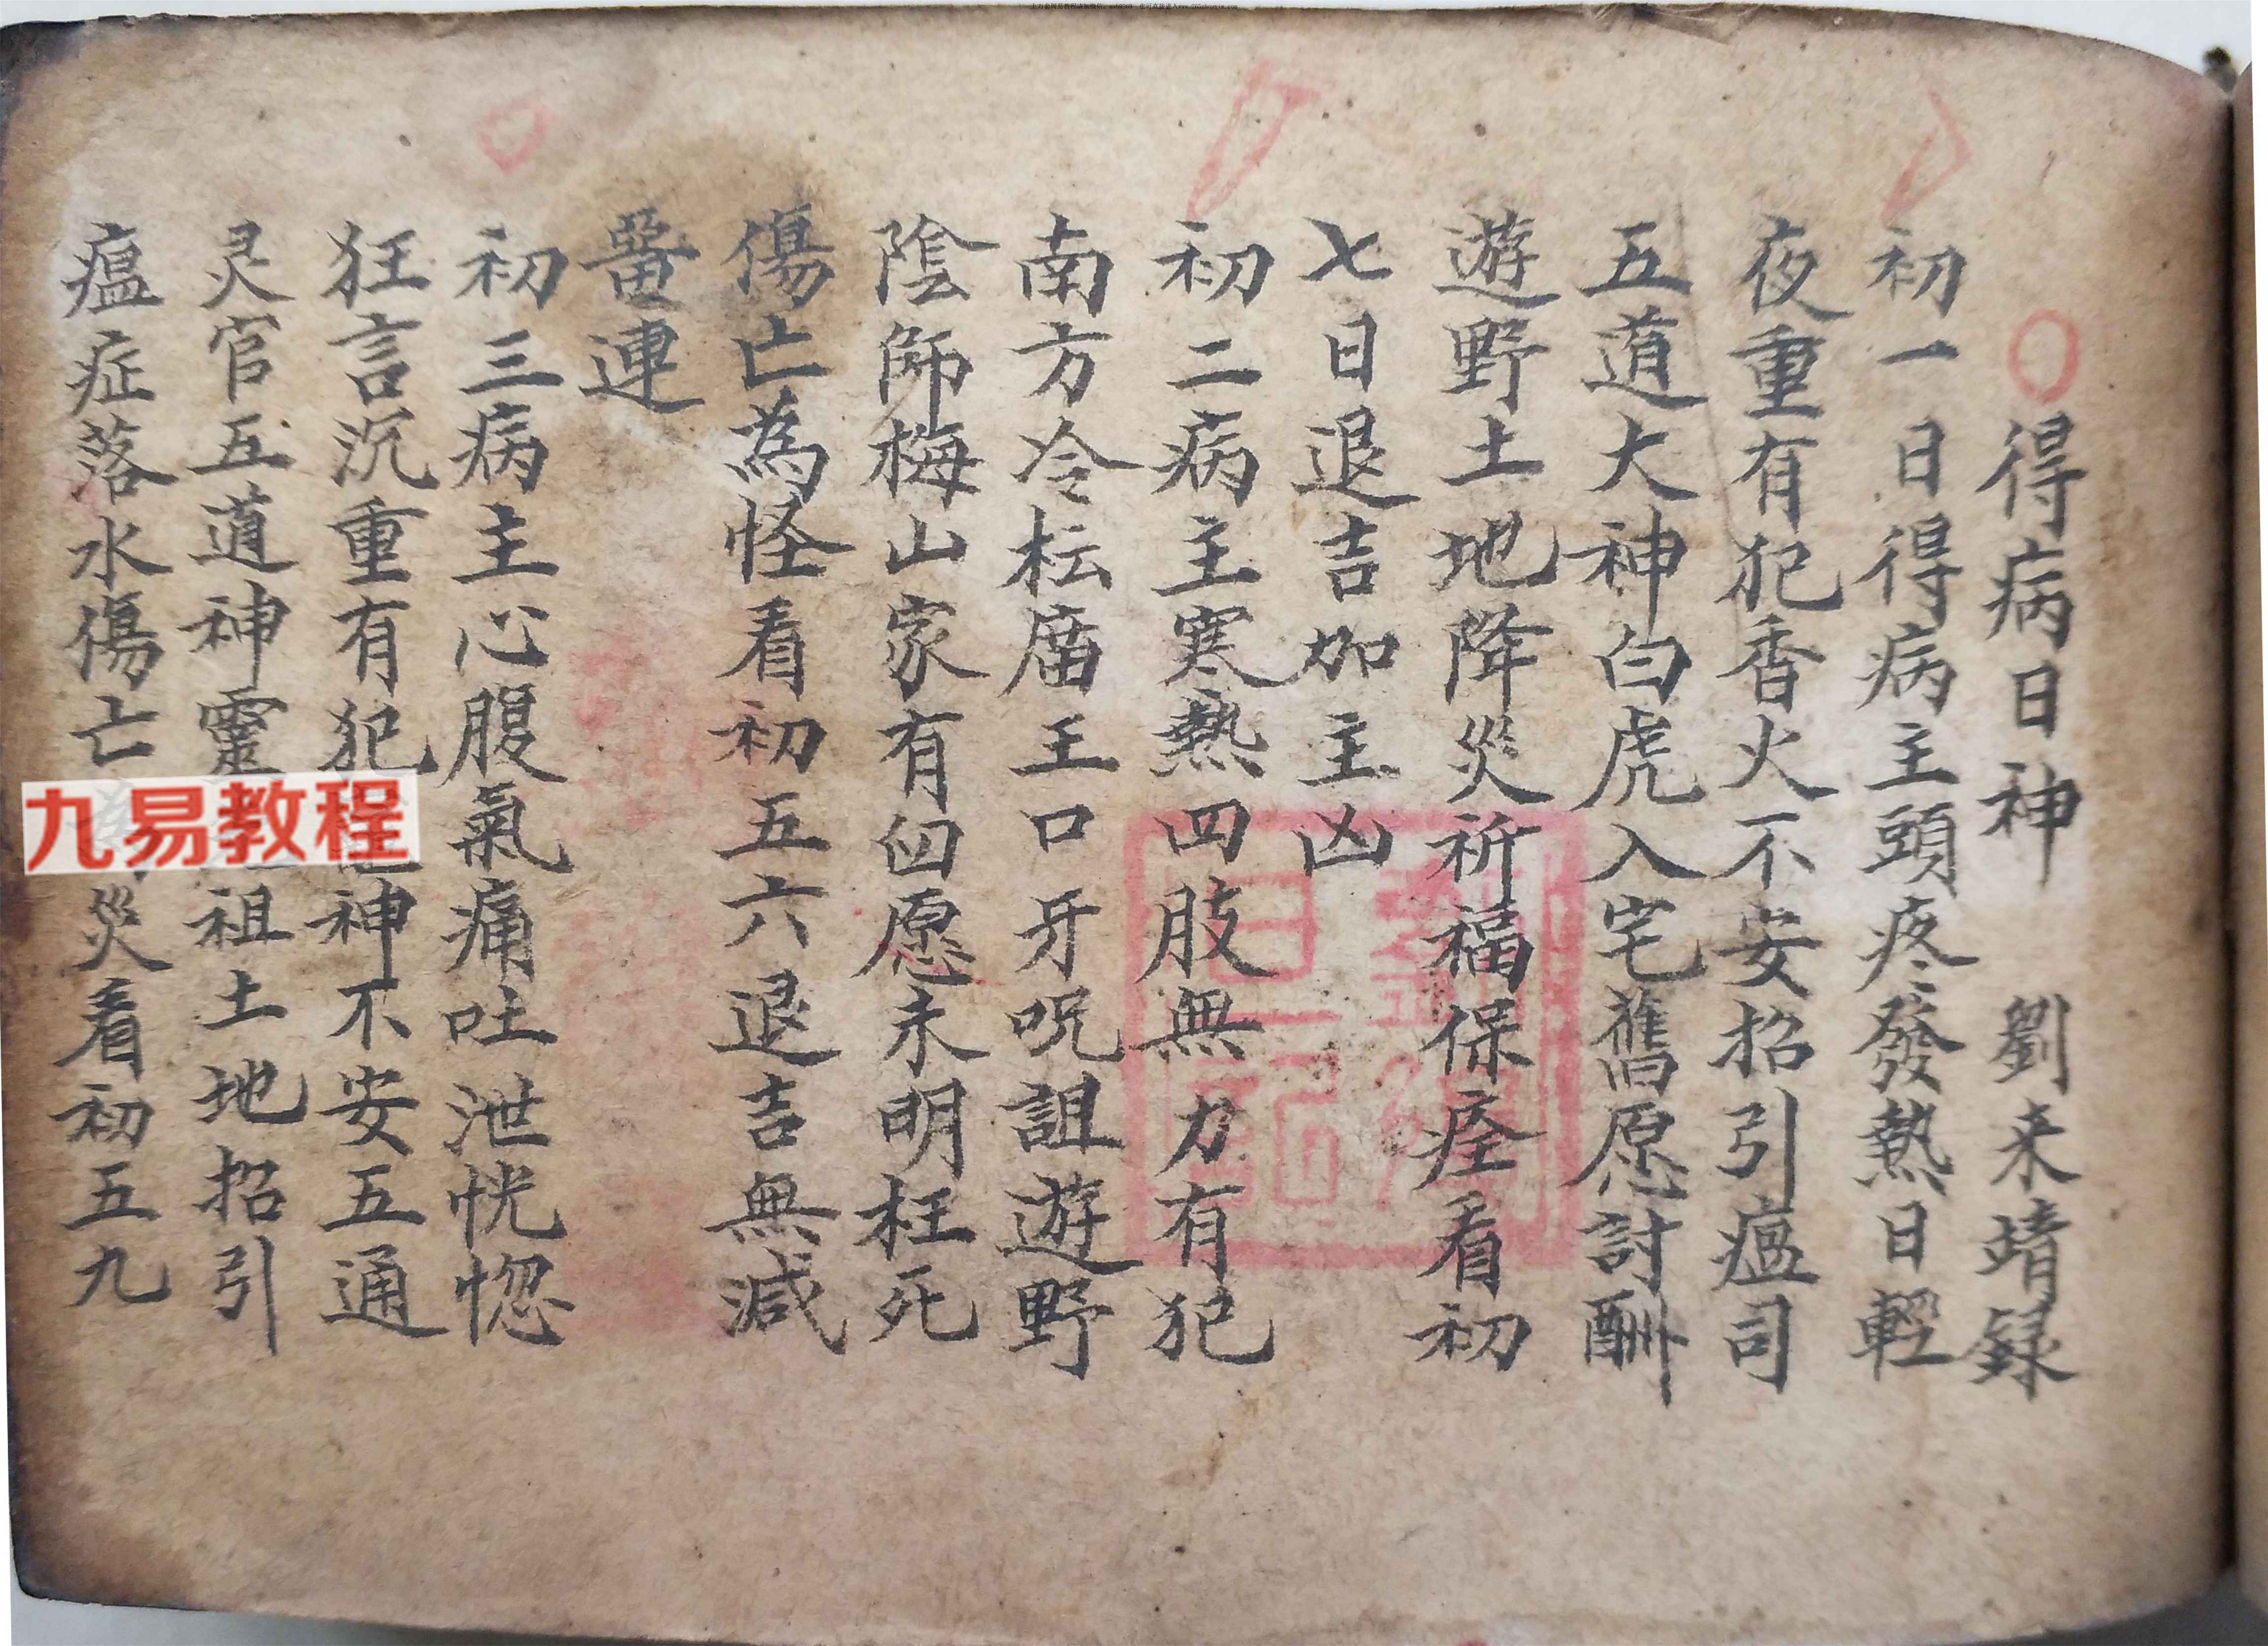 得病日神 劉来靖録
初一日得病主頭疼發熱日輕
夜重有犯香火不安招引瘟司
五道大神白虎入宅舊愿討酬
遊野土地降災祈福保痊看初
七日退吉加主凶
初二病主寒熱四肢無力有犯
南方冷枟廟王口牙咒詛遊野
陰師梅山家有囟愿未明枉死
傷亡為怪看初五六退吉無減
畱連
初三病主心腹氣痛吐泄恍惚
狂言沉重有犯神不安五通
灵官五道神靈祖土地招引
瘟症落水傷亡災看初五九
九易教程